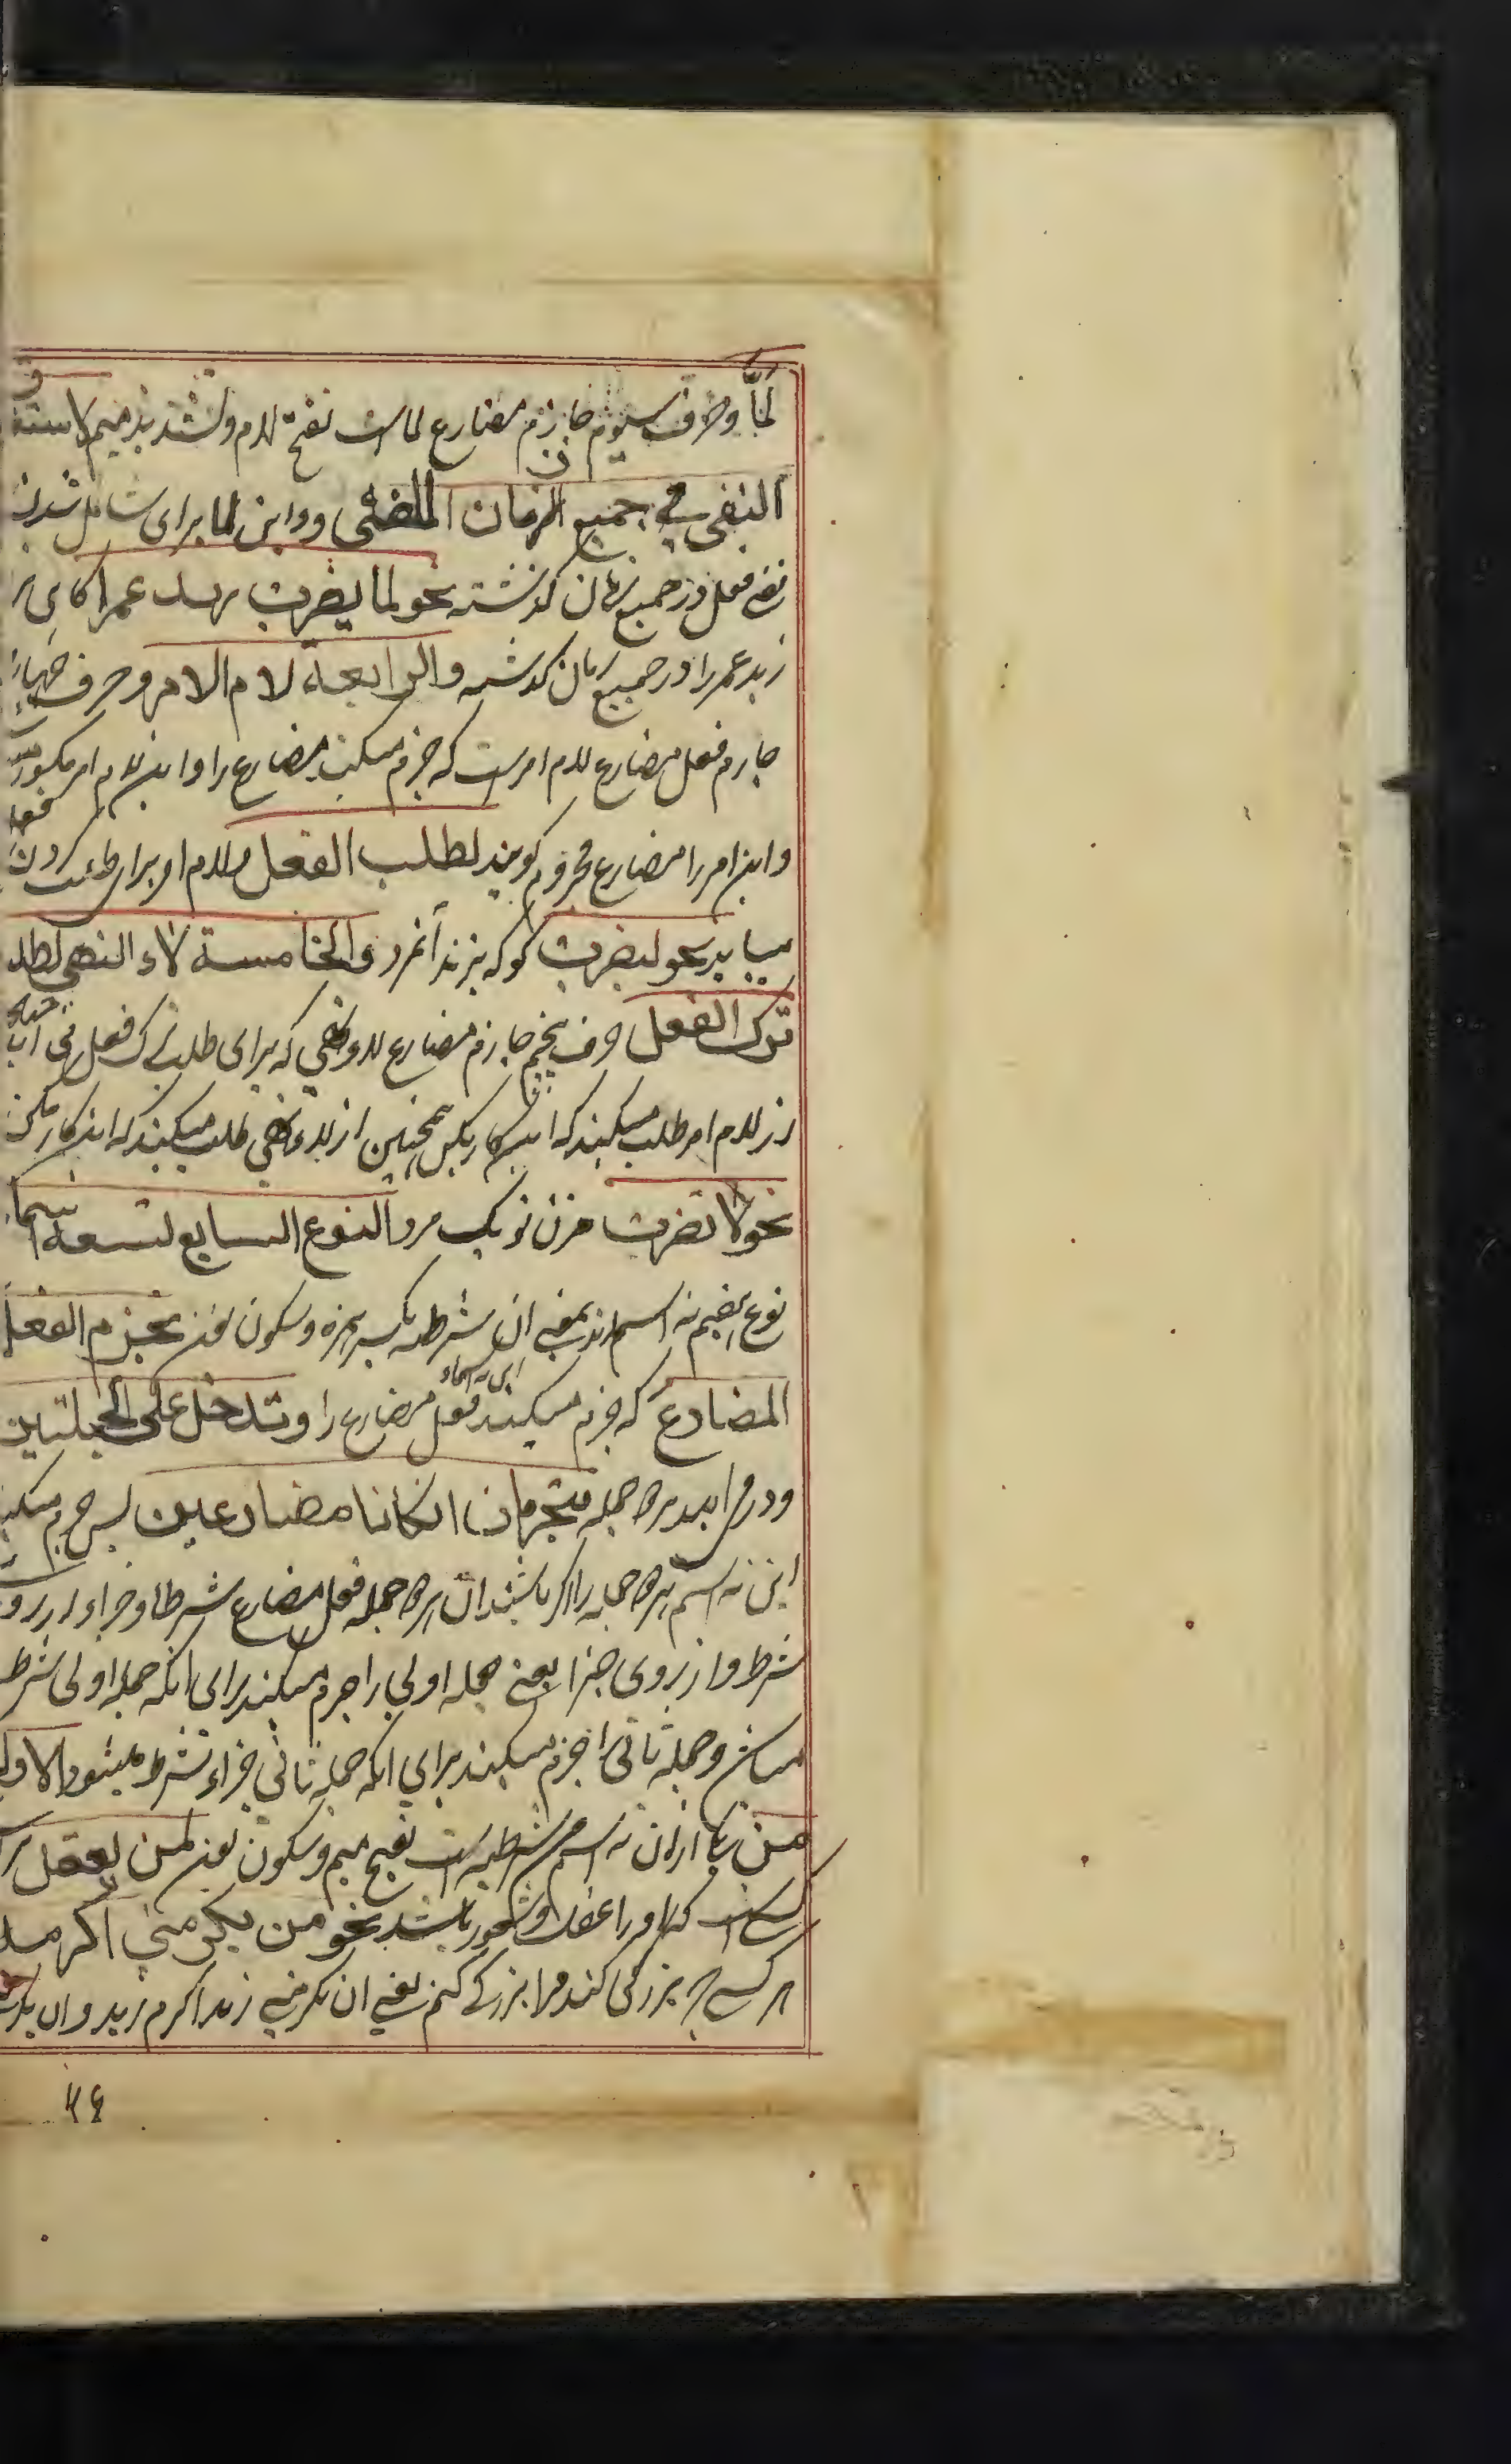 لمَّا وحرف سیوم جازم مضارع لما است بفتح لام وتشدید میم لاستغراق
النفی فی جمیع الزمان الماضی واین لما برای شامل شدن
نفی فعل در جمیع زمان گذشته نحو لما یضرب زید عمرا
زید عمر را در جمیع زمان گذشته والرابعة لام الامر وحرف چهارم
جازم فعل مضارع لام امر است که جزم میکند مضارع را واین لام امر مکسور است
واین امر را مضارع مجزوم گویند لطلب الفعل ولام امر برای طلب کردن فعل
میاید نحو لیضرب کو که بزند آنمرد والخامسة لاء النهی لطلب
ترک الفعل حرف پنجم جازم مضارع لاء نهی که برای طلب ترک فعل می اید چنانکه
از لام امر طلب میکنند که این کار بکن همچنین از لاء نهی طلب میکنند که این کار مکن
نحو لا تضرب مزن تو یک مرد النوع السابع تسعة اسماء
نوع هفتم نه اسم اند بمعنی ان شرطیه بکسر همزه وسکون نون تجزم الفعل
المضارع که جزم میکنند این نه اسماء فعل مضارع را وتدخل علی الجملتین
ودرمی ایند بردو جمله فتجزمان ان کانا مضارعین پس جزم میکنند
این نه اسم هردو جمله را اگر باشند ان هردو جمله فعل مضارع شرطا وجزاء از روی
شرط واز روی جزا یعنی جمله اولی را جزم میکنند برای انکه جمله اولی شرط
میباشد وجمله ثانی را جزم میکنند برای انکه جمله ثانی جزاء شرط میشود الاول
من یکی ازان نه اسم من شرطیه است بفتح میم وسکون نون لمن یعقل
کسی است که او را عقل وشعور باشد نحو من یکرمنی اکرمه
هر کسی که بزرگی کند مرا بزرگی کنم یعنی ان یکرمنی زید اکرم زید وان یکرمنی
۲۴